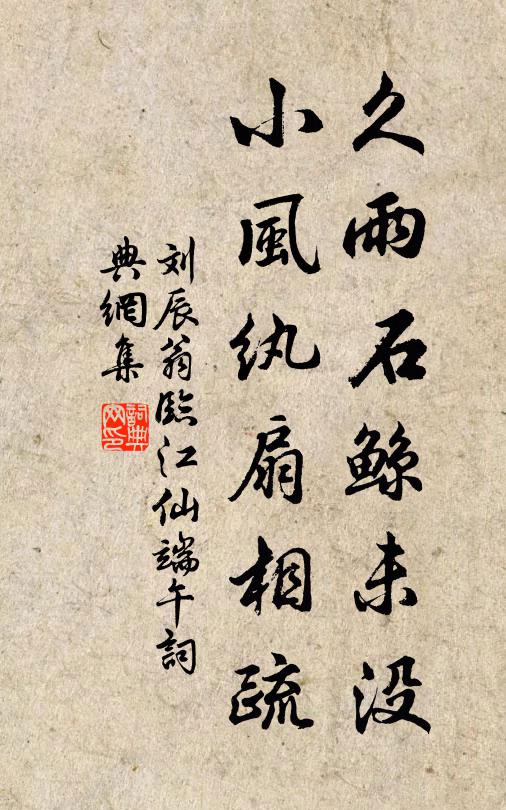 久雨石鲸未没
小風纨扇相疏
刘辰翁臨江仙端午詞
典網集
詞典
网印